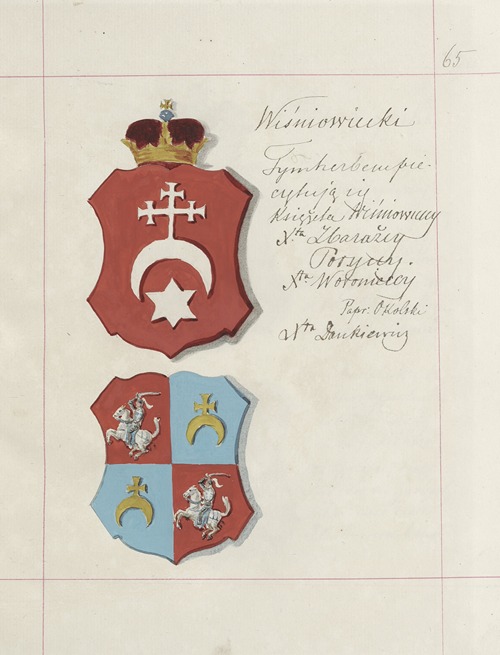 65
Wiśniowiecki
Tym herbem pie-
czętują się
Książęta Wiśniowieccy
Xta Zbarażcy
Poryccy.
Xta Woronieccy
Papr: Okolski
Xta